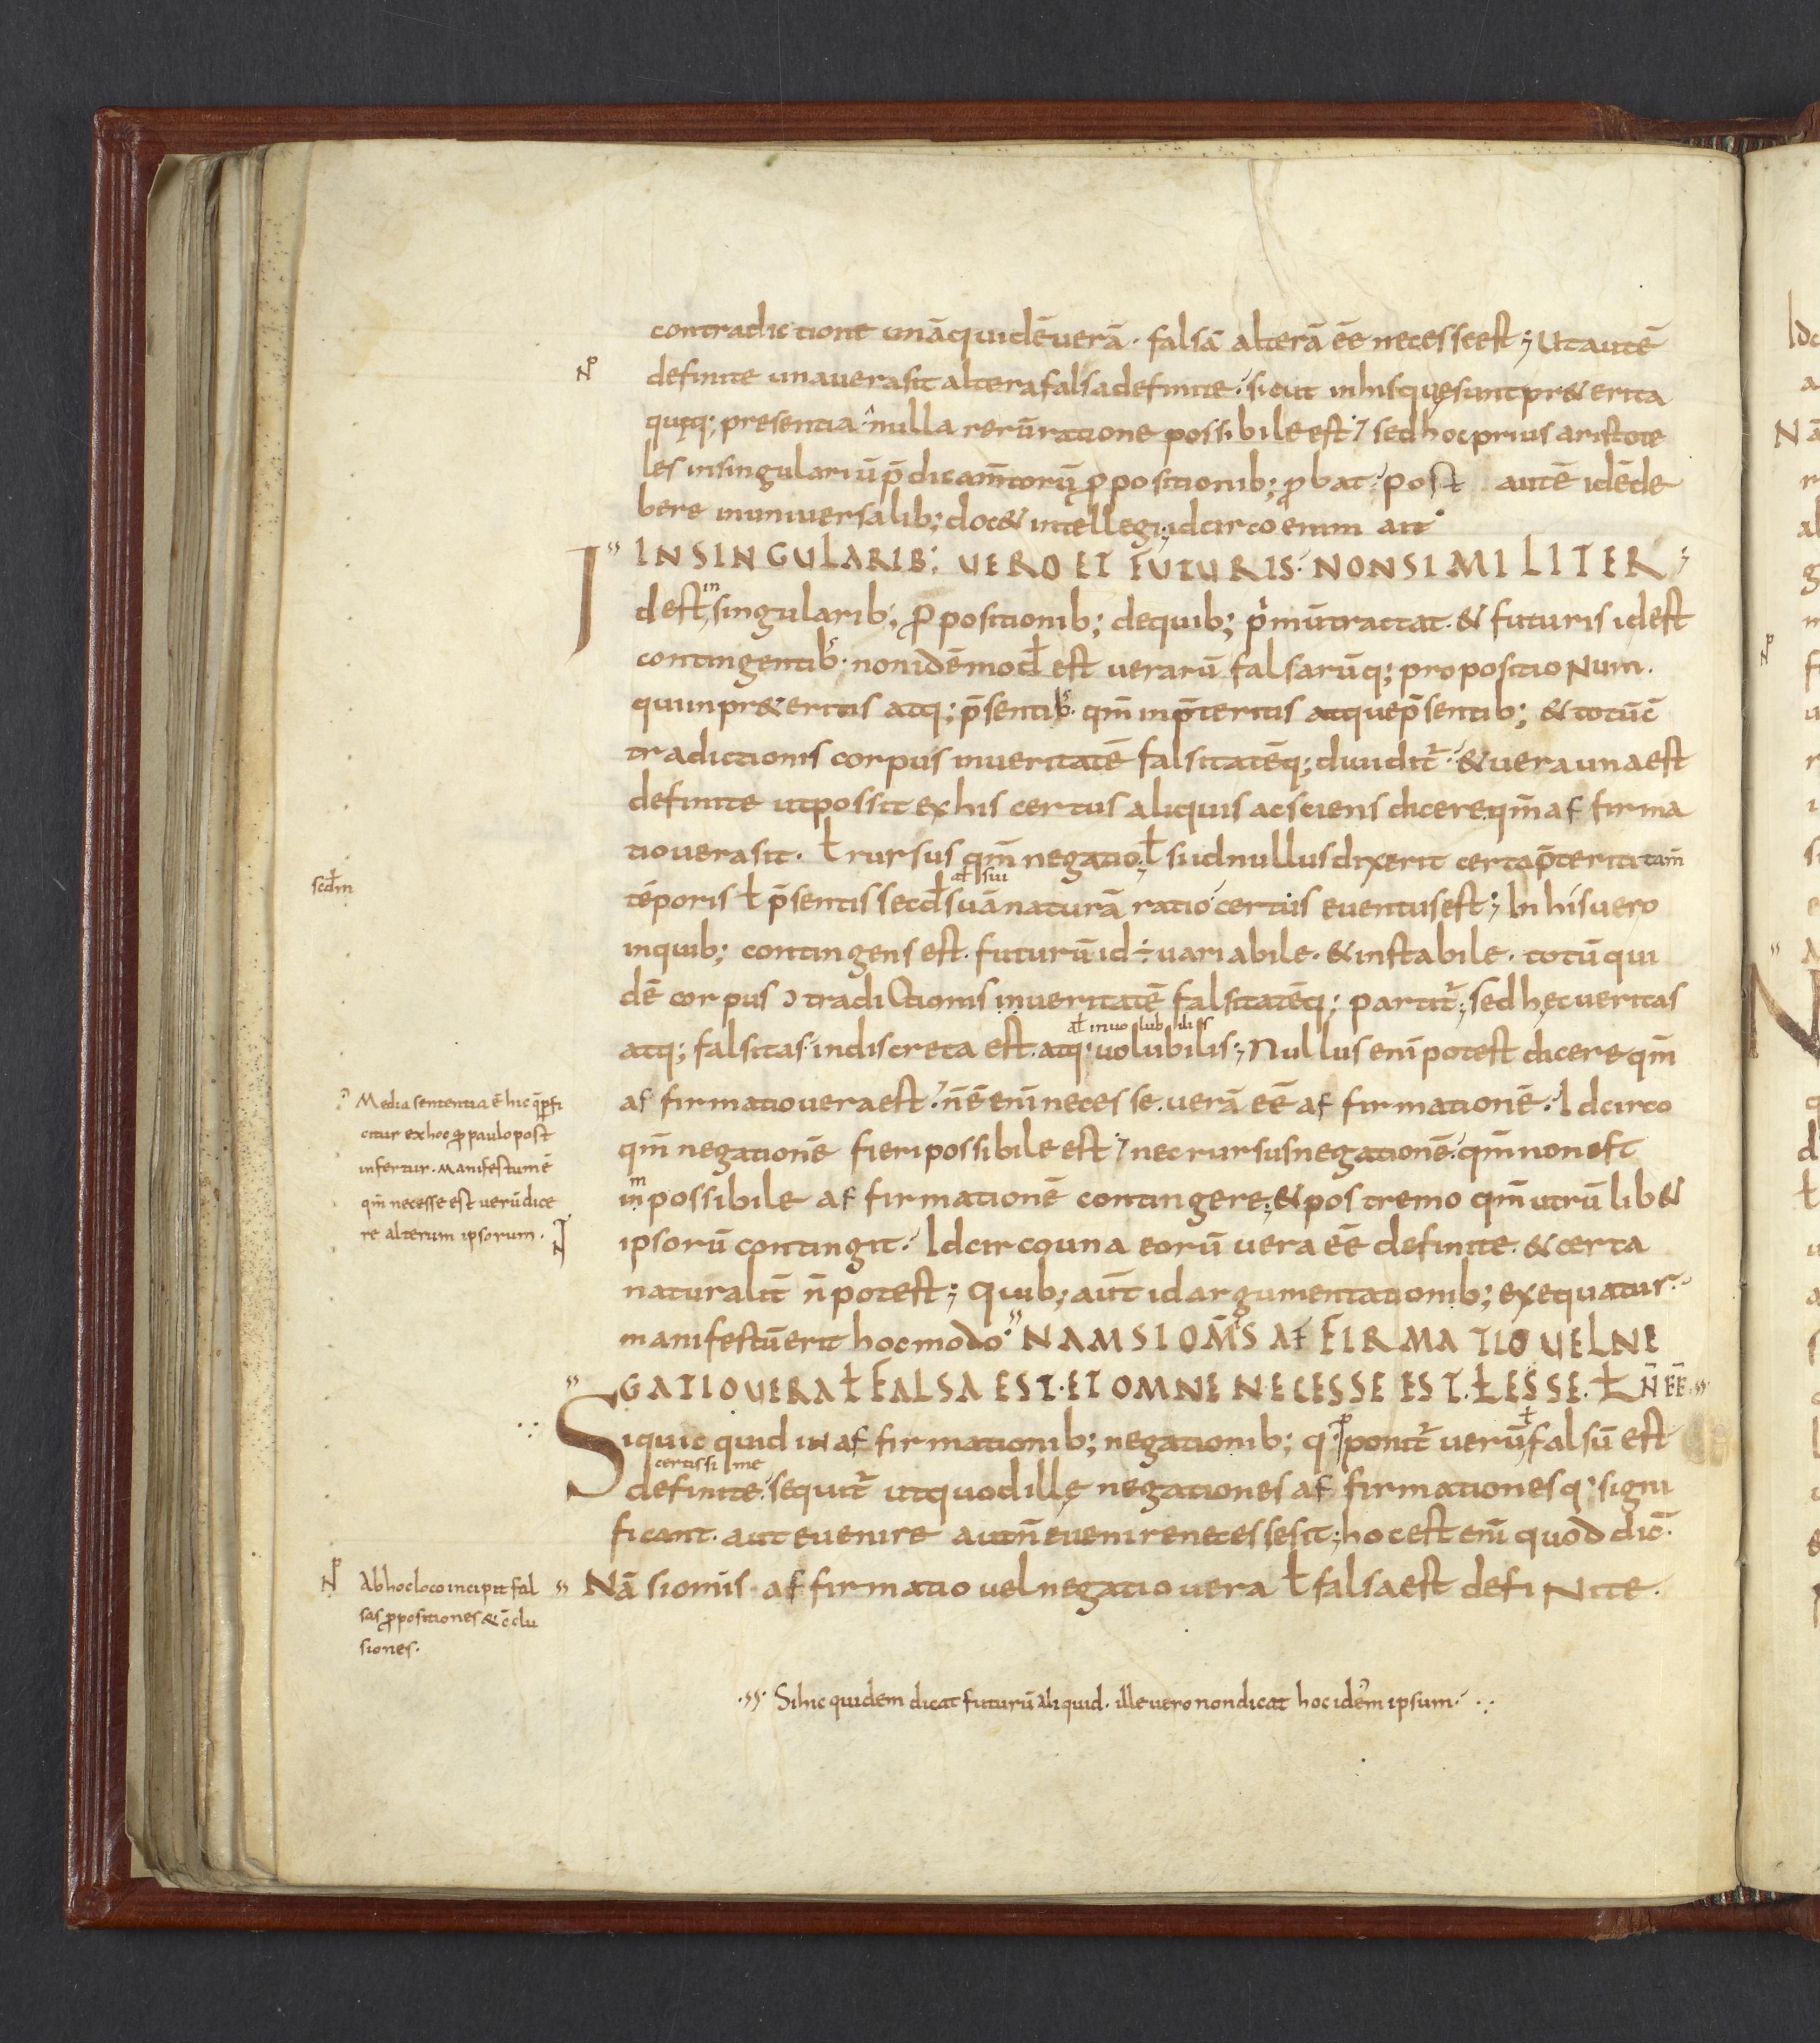 contradictione unā quidē verā · falsā alterā ēē necesse est ; Ut autē
definite una vera sit altera falsa definite · sicut in his quę sunt pr&erita
quęq; presentia · nulla rerū ratione possibile est ; sed hoc prius aristote
les in singulariū p̄dicam̄torū ꝓpositionib; ꝓbat · post autē idē de
bere in universalib; doc& intellegi ; idcirco enim ait ·
IN SINGULARIB; VERO ET FUTURIS · NON SIMILITER ;
I dest in singularib; ꝓpositionib; de quib; primū tractat · & futuris id est
contingentib; · non idē mod̄ est verarū falsarūq; propositioNum ·
qui in pr&eritis atq; p̄sentib; · qm̄ in p̄teritis atque p̄sentib; & totū c̄
tradictionis corpus in veritatē falsitatēq; dividit᷑ · & vera una est
definite ut possit ex his certus aliquis ac sciens dicere qm̄ affirma
tio vera sit · ł rursus qm̄ negatio ; ł si id nullus dixerit certa p̄teriti tam̄
al̄ sui
sed̄m
tēporis ł p̄sentis secd̄ suā naturā ratio certus eventus est ; In his vero
in quib; contingens est · futurū id ÷ variabile · & instabile · totū qui
dē corpus ɔtradictionis in veritatē falsitatēq; partit᷑ ; sed hęc veritas
al̄ involubilis
atq; falsitas indiscreta est · atq; volubilis ; Nullus enī potest dicere qm̄
affirmatio vera est · n̄ ē enī necesse · verā ēē affirmationē · Idcirco
qm̄ negationē fieri possibile est ; nec rursus negationē · qm̄ non est
m
inpossibile affirmationē contingere ; & postremo qm̄ utrū lib&
ipsorū contingit · Idcirco una eorū vera ēē definite · & certa
naturalit̄ n̄ potest ; Quib; aūt id argumentationib; exequatur ·
manifestū erit hoc modo · NAM SI OM̄S AFFIRMATIO VEL NE
GATIO VERA Ł FALSA EST · ET OMNE NECESSE EST · Ł ESSE · Ł N̄ ĒĒ ·
Siquic quid iN affirmationib; negationib; q; ꝓponit᷑ verū ł falsū est
certissime
definite · sequit᷑ ut quod illę negationes affirmationesq; signi
ficant · aut evenire aut n̄ evenire necesse sit ; hoc est enī quod dic̄ ·
Nā si omīs affirmatio vel negatio vera ł falsa est defiNite ·
Media sententia ē hic q̄ ꝑfi
citur ex hoc ꝙ paulo post
infertur · Manifestum ē
qm̄ necesse est verū dice
re alterum ipsorum ·
Ab hoc loco incipit fal
sas ꝓpositiones & c̄clu
siones ·
Si hic quidem dicat futurū aliquid · ille vero non dicat hoc idem ipsum ·